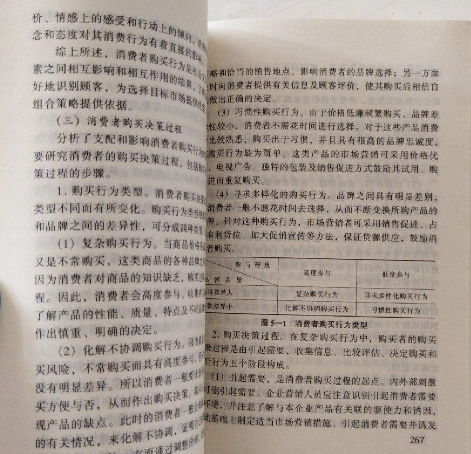 价、情感上的感受和行动上的倾向。
念和态度对其消费行为有着直接的影响。
综上所述，消费者购买行为是
素之间相互影响和相互作用的结果。
好地识别顾客，为选择目标市场提供
组合策略提供依据。
(三) 消费者购买决策过程
分析了支配和影响消费者购买行为
要研究消费者的购买决策过程，包括
策过程的步骤。
1. 购买行为类型。消费者购买
类型不同而有所变化。购买行为类型
和品牌之间的差异性，可分成四种类型
(1) 复杂购买行为。当商品价格
又是不常购买，这类商品的各种品牌之
因为消费者对商品的知识缺乏，购买
程。因此，消费者会高度参与，收集
了解产品的性能、质量、特点及不
作出慎重、明确的决定。
(2) 化解不协调购买行为。
买风险，不常购买而具有高度参与，
没有明显差异。所以消费者一般
买方便与否，从而作出购买决策。
现产品的缺点。此时的消费者一般
的有关情况，来化解不协调，证明
面通过调整价格
略和恰当的销售地点，影响消费者的品牌选择；另一方面
时向消费者提供有关信息及顾客评价，使其购买后相信自
做出正确的决定。
(3) 习惯性购买行为。由于价格低廉频繁购买、品牌差
性较小，消费者不需花时间进行选择。对于这些产品消费
比较熟悉，购买出于习惯，并且具有很高的品牌忠诚度，
购买行为最为简单。这类产品的市场营销可采用价格优
、电视广告、独特的包装及销售促进方式鼓励其试用、购
进而重复购买。
(4) 寻求多样化的购买行为。品牌之间具有明显差别，
消费者一般不愿花时间去选择，从而不断变换所购产品的
牌。针对这种购买行为，市场营销者可采用销售促进、占
有利货位、加大促销宣传等方法，保证货源供应，鼓励消
者购买。
参与程度 高度参与 低度参与
差异
差异大 复杂购买行为 寻求多样化购买行为
差异小 化解不协调购买行为 习惯性购买行为
图 5—1 消费者购买行为类型
2. 购买决策过程。在复杂购买行为中，购买者的购买
过程是由引起需要、收集信息、比较评估、决定购买和
后行为五个阶段构成。
(1) 引起需要，是消费者购买过程的起点。内外部刺激
可能引起需要。企业营销人员应注意识别引起消费者需要
境，并注意了解与本企业产品有关联的驱使力和诱因，
基础上制定适当市场营销措施，引起消费者需要并诱发
267